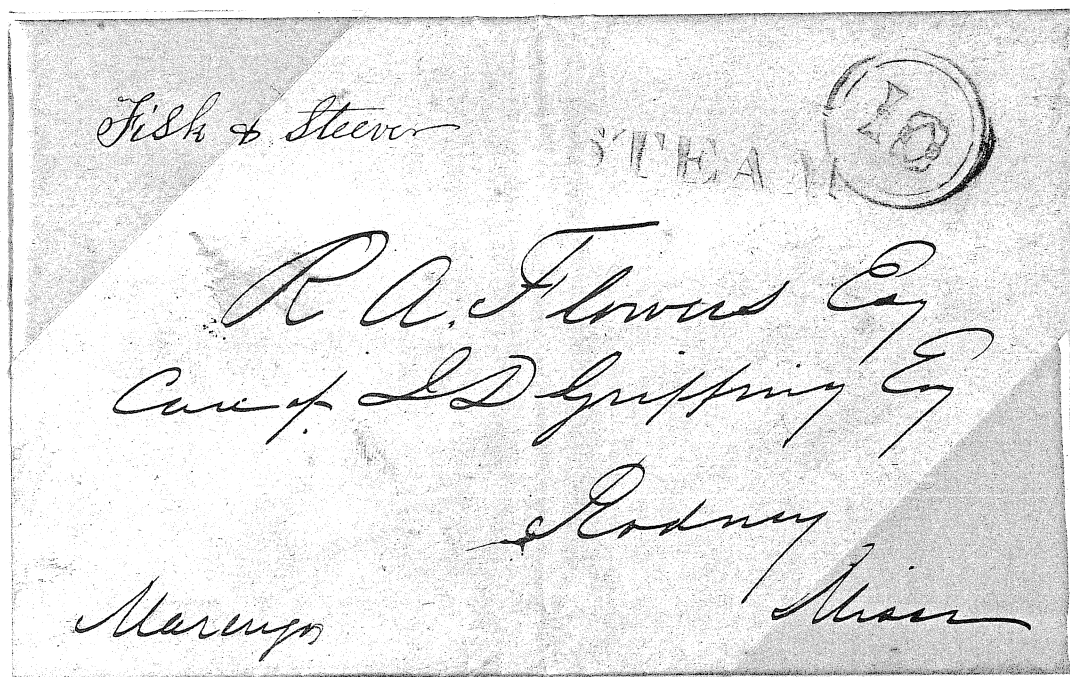 Fisk & Steever
STEAM
10
R A. Flowers Esq
Care of S D Griffing Esq
Rodney
Miss
Marengo